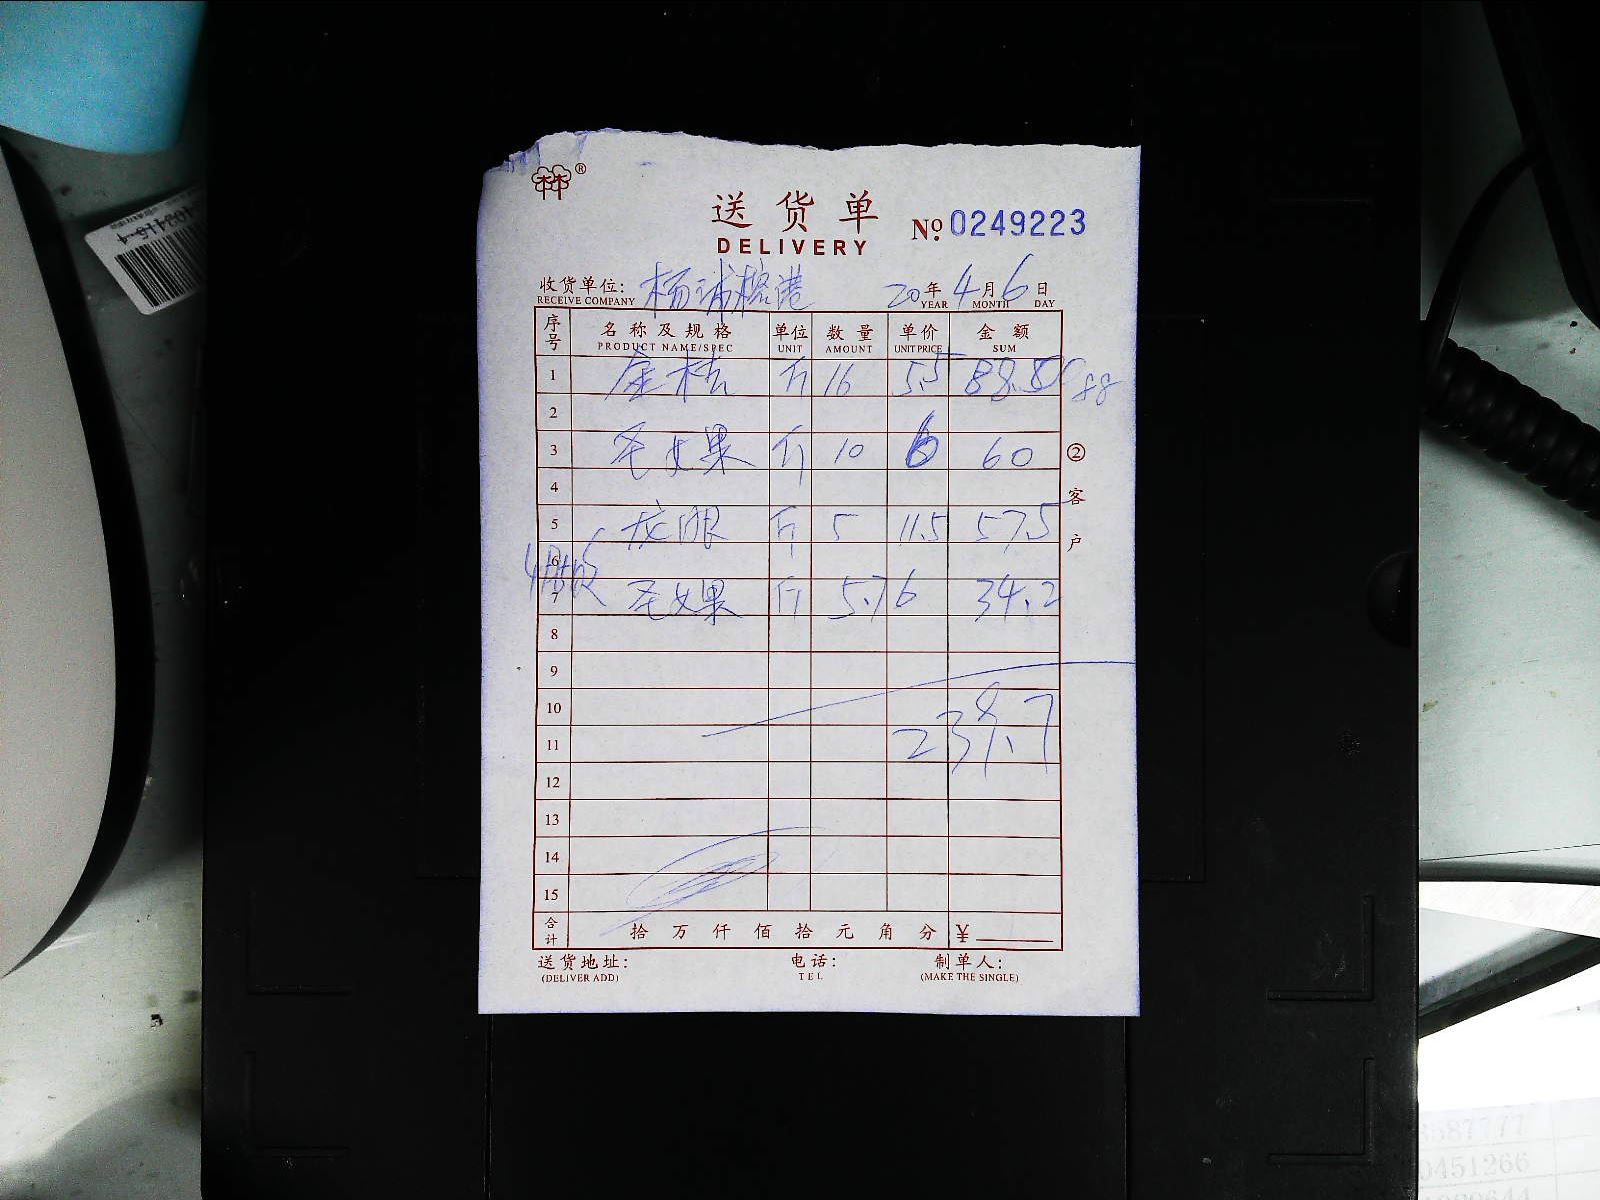 林®
送货单
DELIVERY
№ 0249223
收货单位: 杨 榕港 20年4月6日
RECEIVE COMPANY YEAR MONTH DAY
序号 名称及规格 单位 数量 单价 金额
PRODUCT NAME/SPEC UNIT AMOUNT UNIT PRICE SUM
1 金桔 斤 16 5.5 88
2
3 圣女果 斤 10 6 60
4
5 龙眼 斤 5 11.5 57.5
6
7 圣女果 斤 5.7 6 34.2
8
9
10
11 239.7
12
13
14
15
合计 拾万仟佰拾元角分 ¥
送货地址: 电话: 制单人:
(DELIVER ADD) TEL (MAKE THE SINGLE)
②客户
3587777
0451266